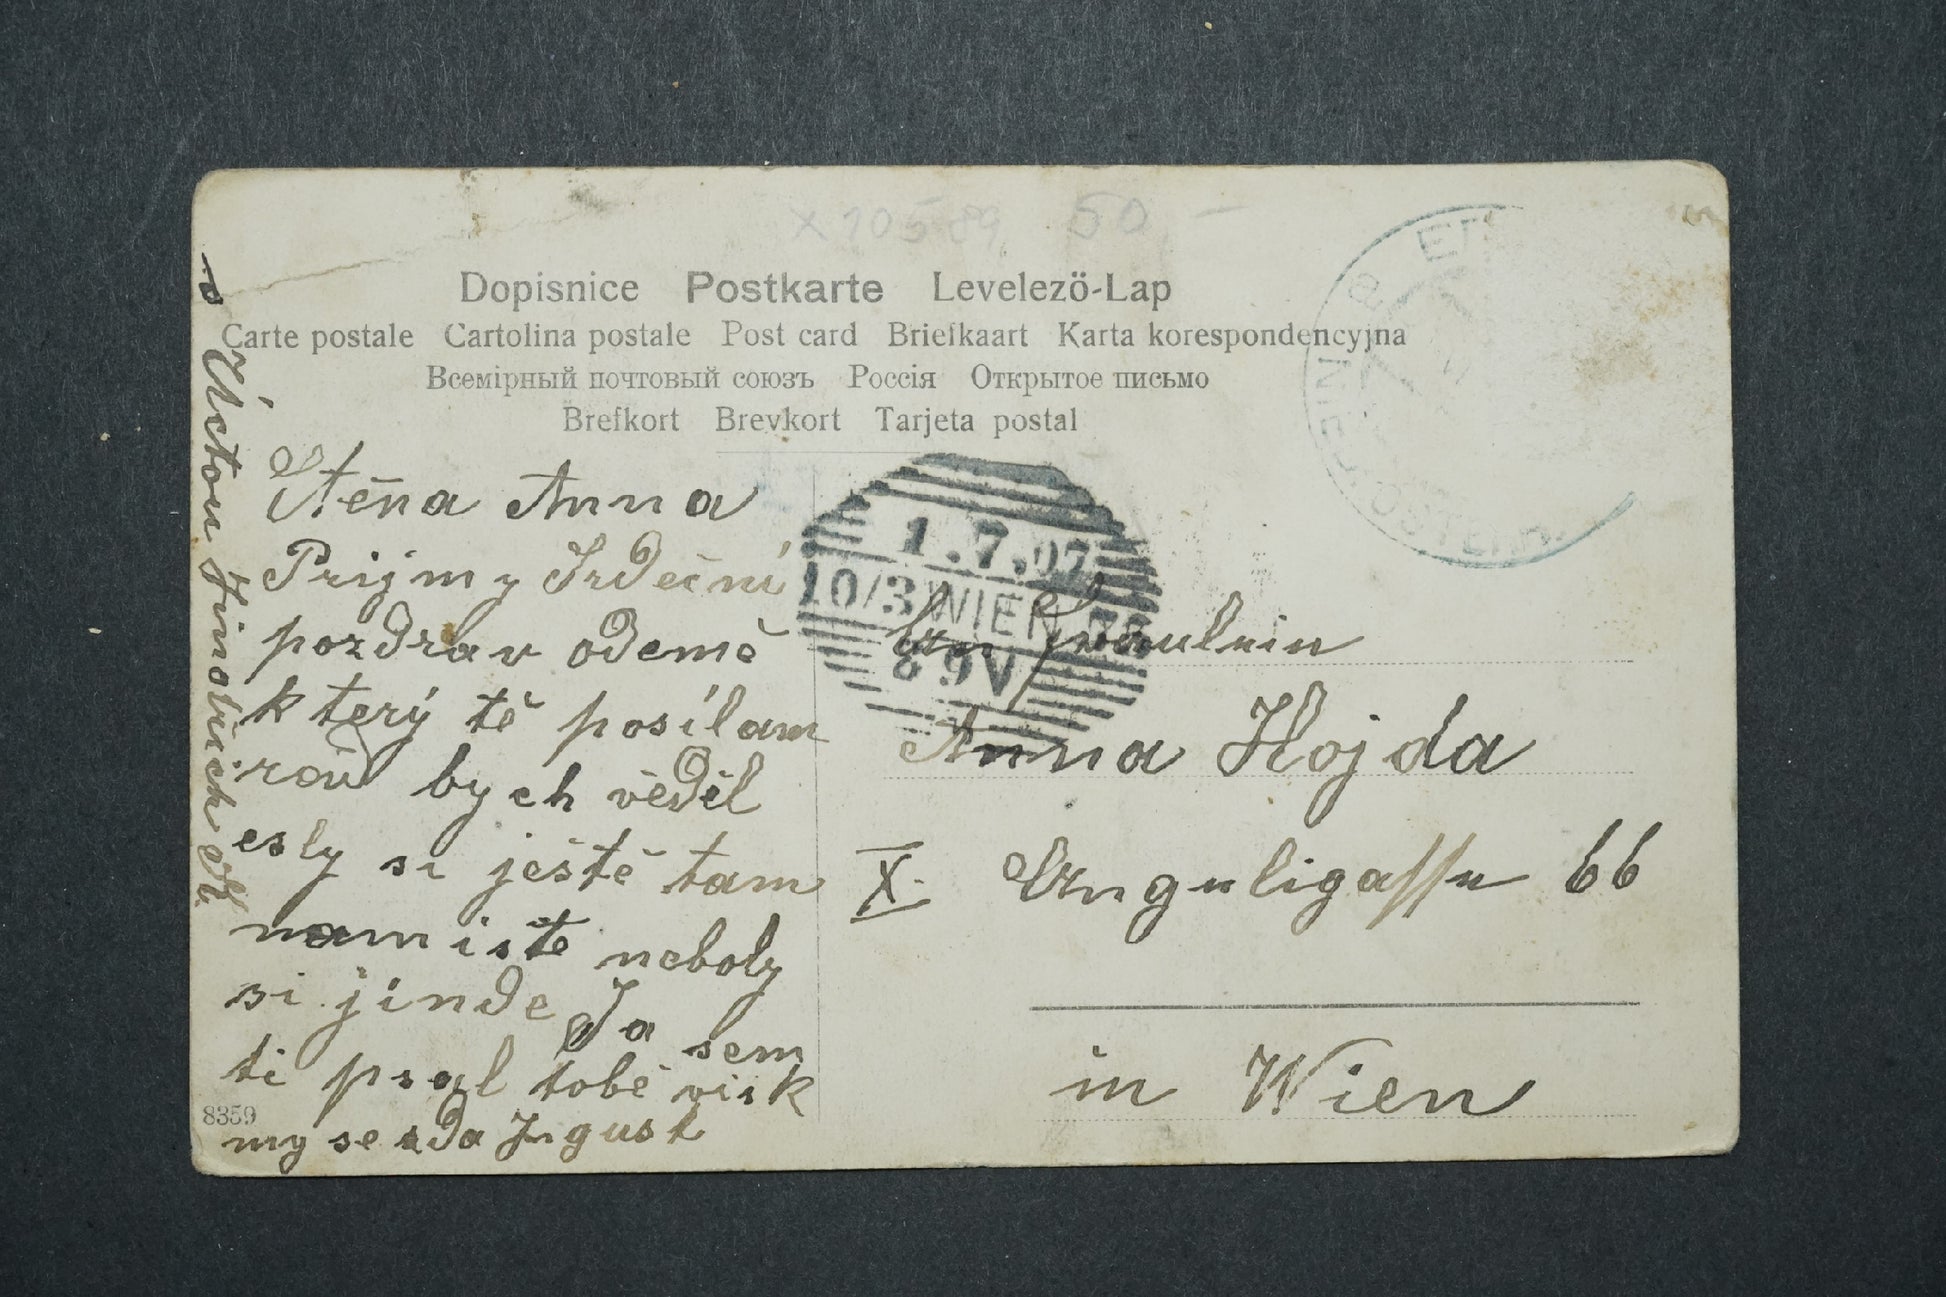 x 10589 50 -
Dopisnice Postkarte Levelező-Lap
Carte postale Cartolina postale Post card Briefkaart Karta korespondencyjna
Всемірный почтовый союзъ Россія Открытое письмо
Brefkort Brevkort Tarjeta postal
Anna
Prijmy Srdečni
pozdrav odemě
který tě posílam
bych věděl
esly si ještě tam
namistě neboly
si jinde Ja sem
ti psal tobě
my se zda
8359
Úctou
1.7.07
10/3 WIEN
8 9V
An Fräulein
Anna Hojda
X. 66
in Wien